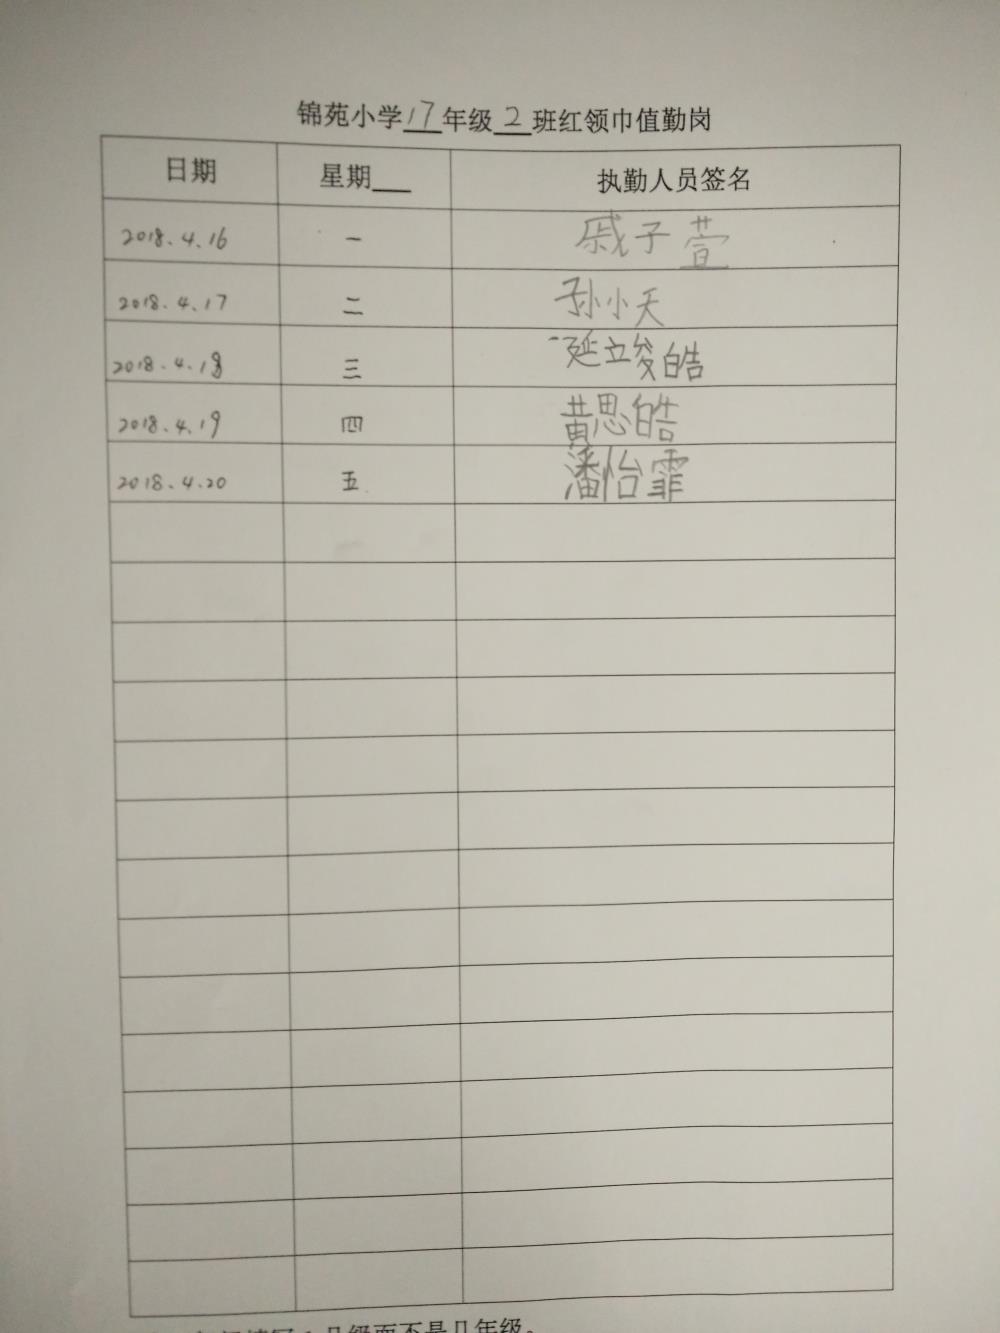 锦苑小学17年级2班红领巾值勤岗
日期 星期___ 执勤人员签名
2018.4.16 一 戚子萱
2018.4.17 二 孙小天
2018.4.18 三 延立俊皓
2018.4.19 四 黄思皓
2018.4.20 五 潘怡霏
级而不是几年级。